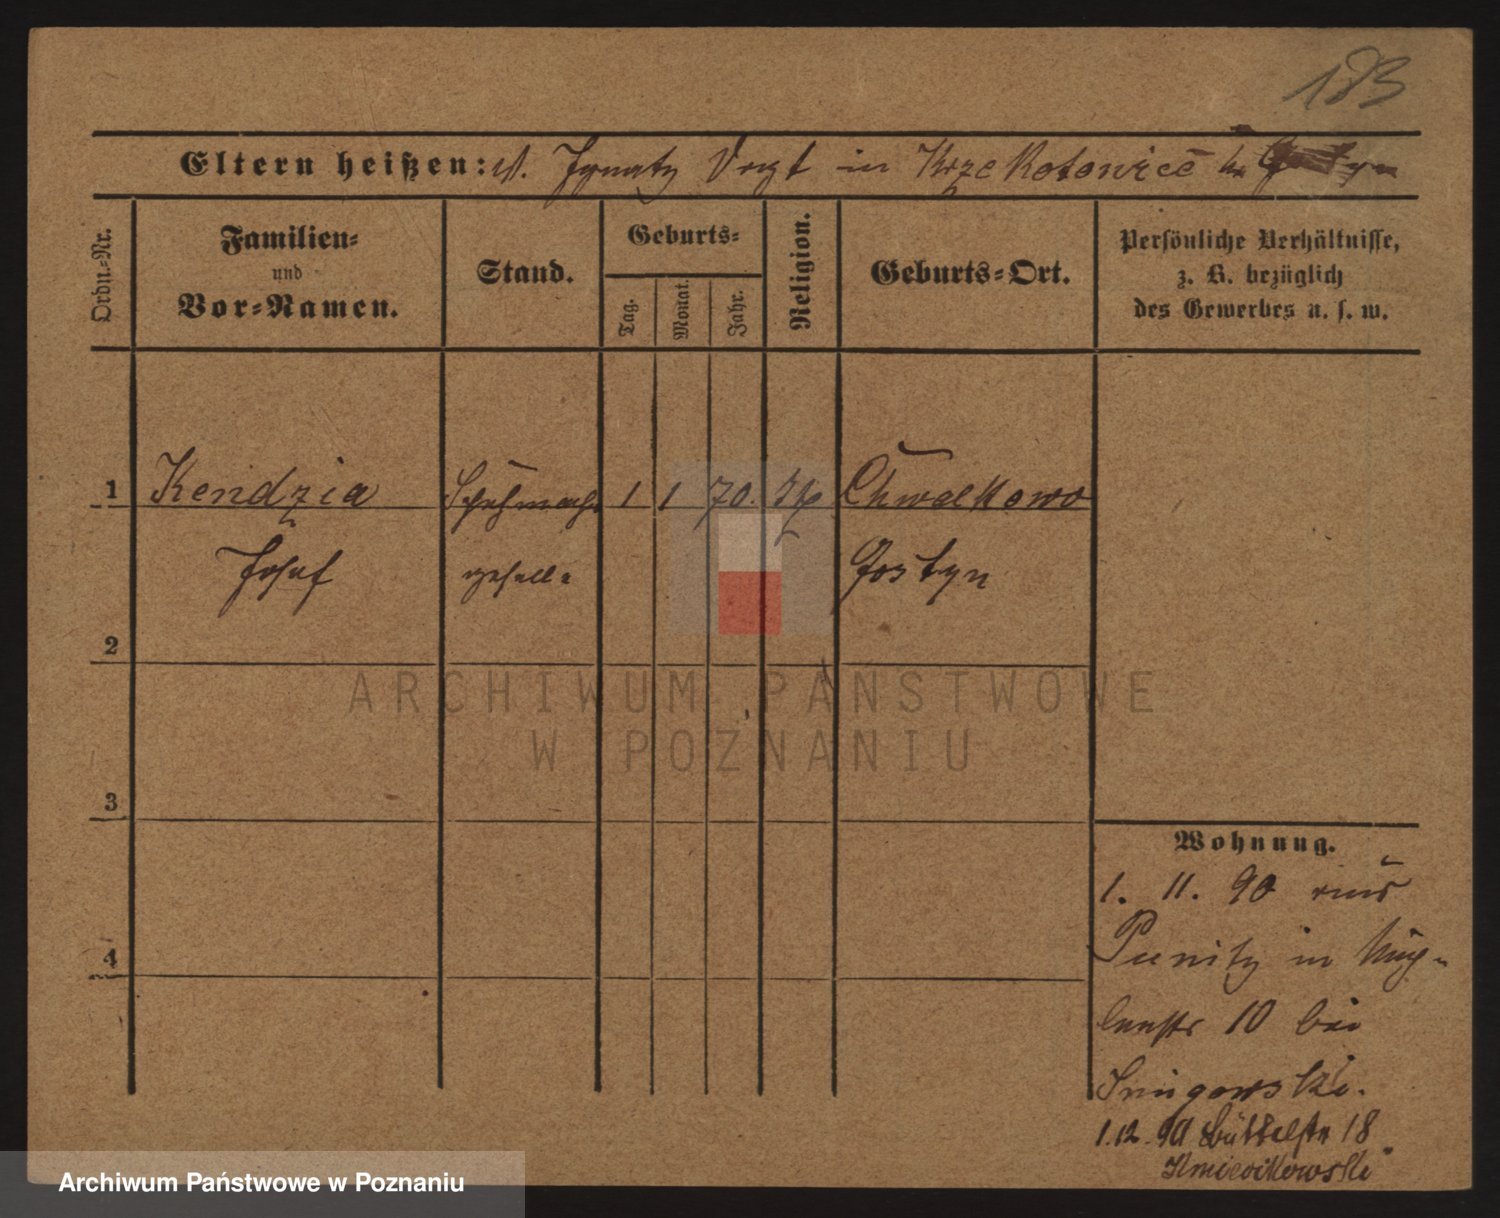 183
Eltern heißen: Ignatz Vogt in Krzekotowice
Ordn.-Nr.
Familien-
und
Vor-Namen.
Stand.
Geburts-
Tag.
Monat.
Jahr.
Religion.
Geburts-Ort.
Persönliche Verhältnisse,
z. B. bezüglich
des Gewerbes u. s. w.
1 Kendzia Schuhmach 1 1 70. Chwalkowo
Josef geselle Gostyn
2
3
4
Wohnung.
1. 11. 90 aus
Punitz in
10 bei
1.12. 90 Büttelstr 18
ARCHIWUM PAŃSTWOWE
W POZNANIU
Archiwum Państwowe w Poznaniu